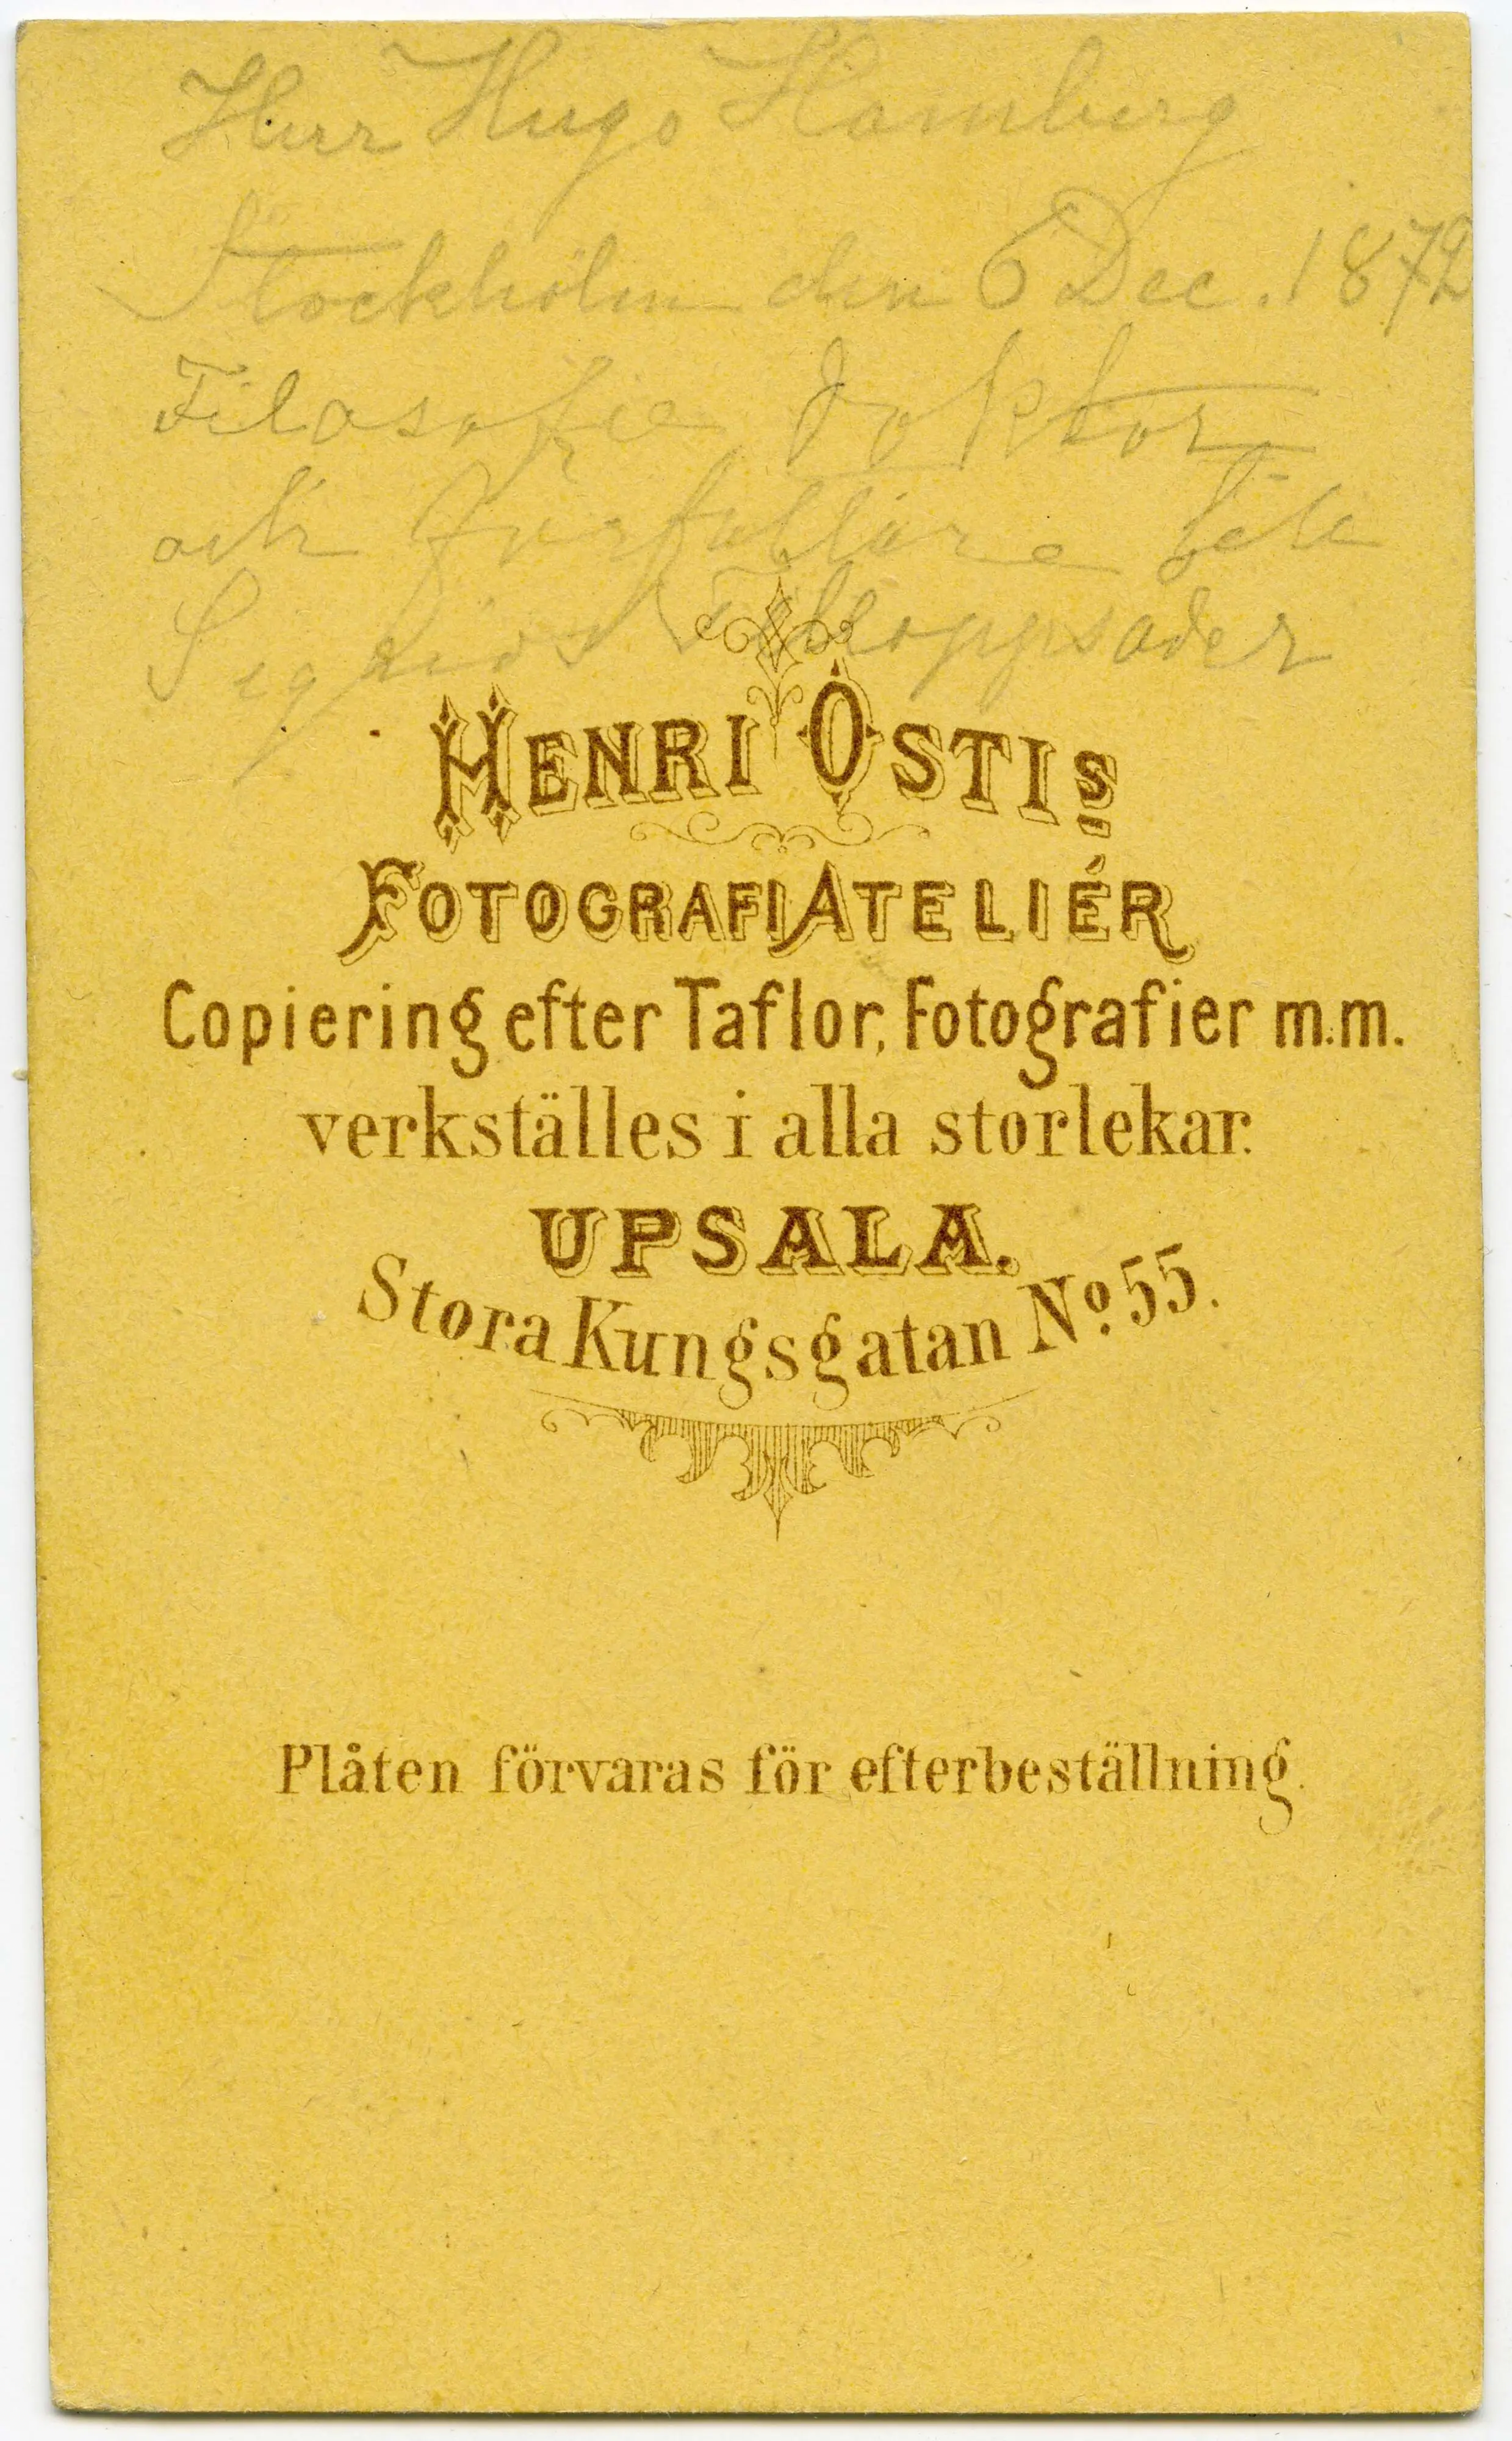 Herr Hugo Hamberg
Stockholm den 6 Dec. 1872
Filosofie Doktor
och författare till
Sigrids
HENRI OSTIS
FOTOGRAFIATELIÉR
Copiering efter Taflor, Fotografier m.m.
verkställes i alla storlekar.
UPSALA.
Stora Kungsgatan No. 55.
Plåten förvaras för efterbeställning.